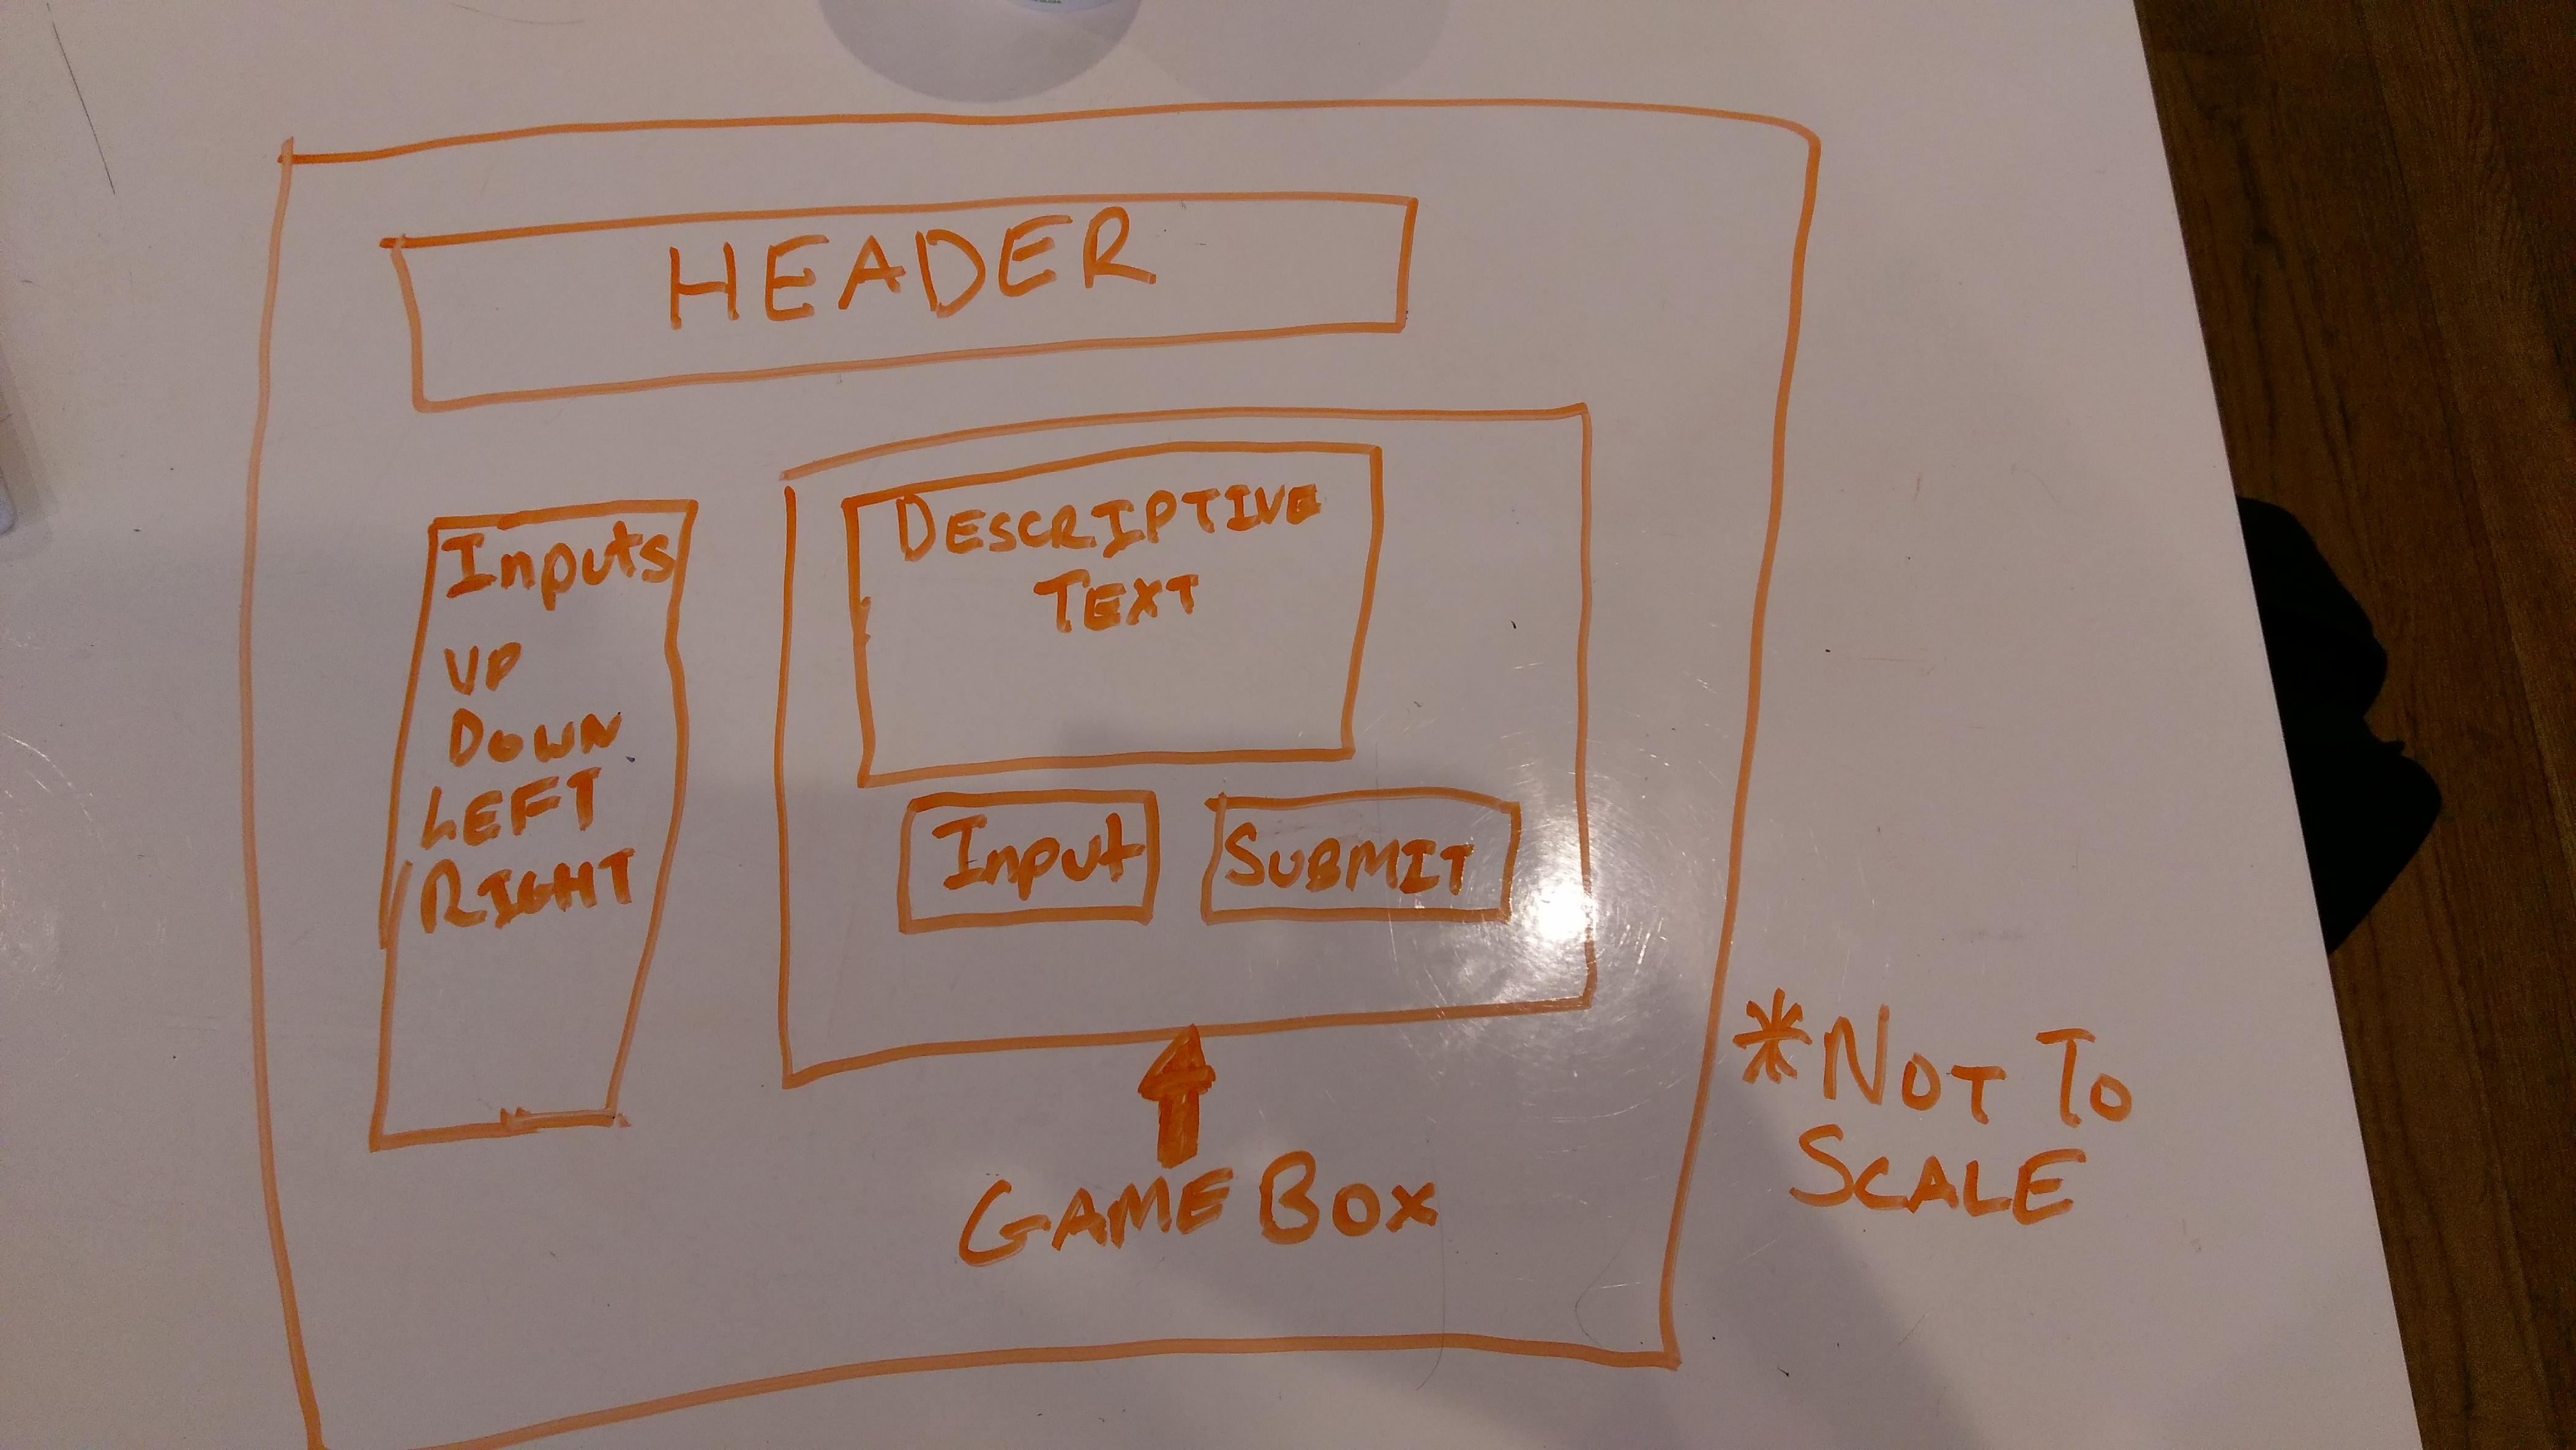 HEADER
Inputs
UP
DOWN
LEFT
RIGHT
DESCRIPTIVE
TEXT
Input
SUBMIT
GAME BOX
*NOT TO
SCALE